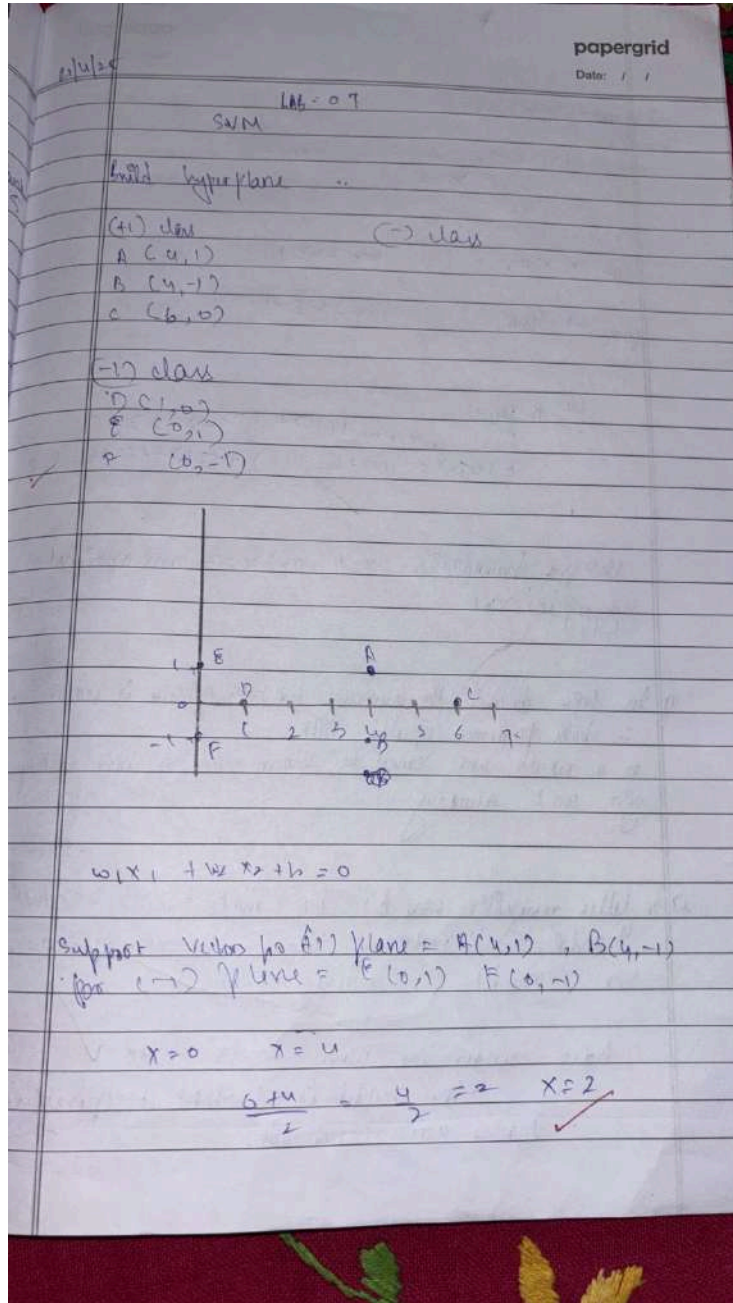 papergrid
Date: / /
LAB - 07
SVM
Build hyperplane ..
(+1) class (-) class
A (4, 1)
B (4, -1)
C (6, 0)
(-1) class
D (1, 0)
E (0, 1)
F (0, -1)
1 E A
0 D C
1 2 3 4 5 6 7
-1 F B
w1x1 + w2 x2 + b = 0
Support vectors for (+1) plane = A(4,1) , B(4,-1)
for (-1) plane = E (0,1) F(0,-1)
x = 0 x = 4
0+4/2 = 4/2 = 2 x = 2